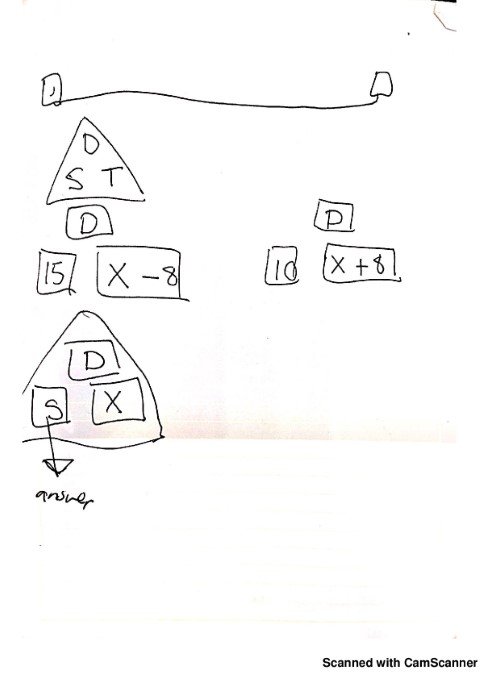 D
S T
D
D
15 X - 8
10 X + 8
D
S X
answer
Scanned with CamScanner